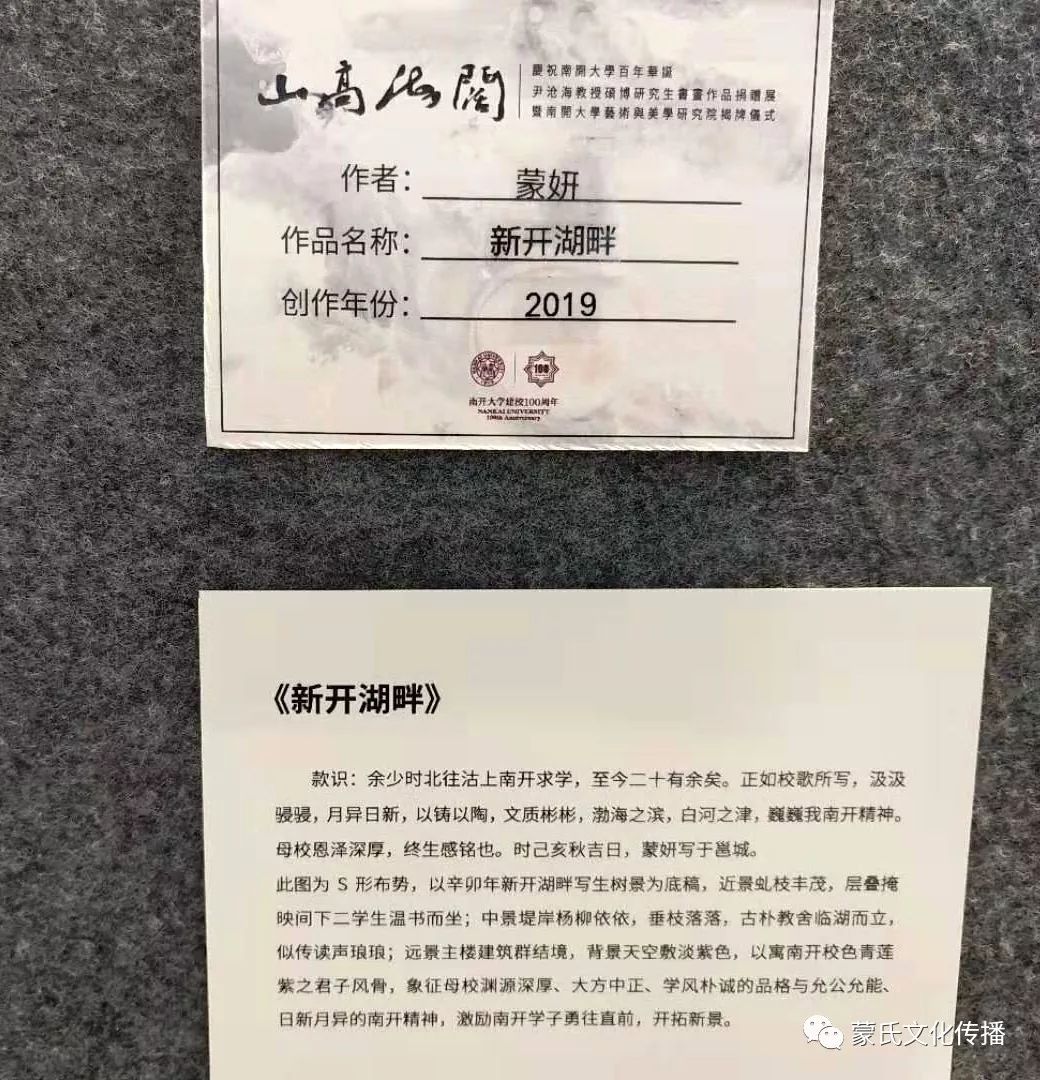 山高海阔
慶祝南開大學百年華誕
尹沧海教授碩博研究生書畫作品捐贈展
暨南開大學藝術與美學研究院揭牌儀式
作者：蒙妍
作品名称：新开湖畔
创作年份：2019
100
南开大学建校100周年
NANKAI UNIVERSITY
100th Anniversary
《新开湖畔》
款识：余少时北往沽上南开求学，至今二十有余矣。正如校歌所写，汲汲
骎骎，月异日新，以铸以陶，文质彬彬，渤海之滨，白河之津，巍巍我南开精神。
母校恩泽深厚，终生感铭也。时己亥秋吉日，蒙妍写于邕城。
此图为 S 形布势，以辛卯年新开湖畔写生树景为底稿，近景虬枝丰茂，层叠掩
映间下二学生温书而坐；中景堤岸杨柳依依，垂枝落落，古朴教舍临湖而立，
似传读声琅琅；远景主楼建筑群结境，背景天空敷淡紫色，以寓南开校色青莲
紫之君子风骨，象征母校渊源深厚、大方中正、学风朴诚的品格与允公允能、
日新月异的南开精神，激励南开学子勇往直前，开拓新景。
蒙氏文化传播